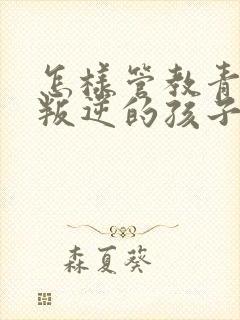 怎样管教青
叛逆的孩子
森夏葵